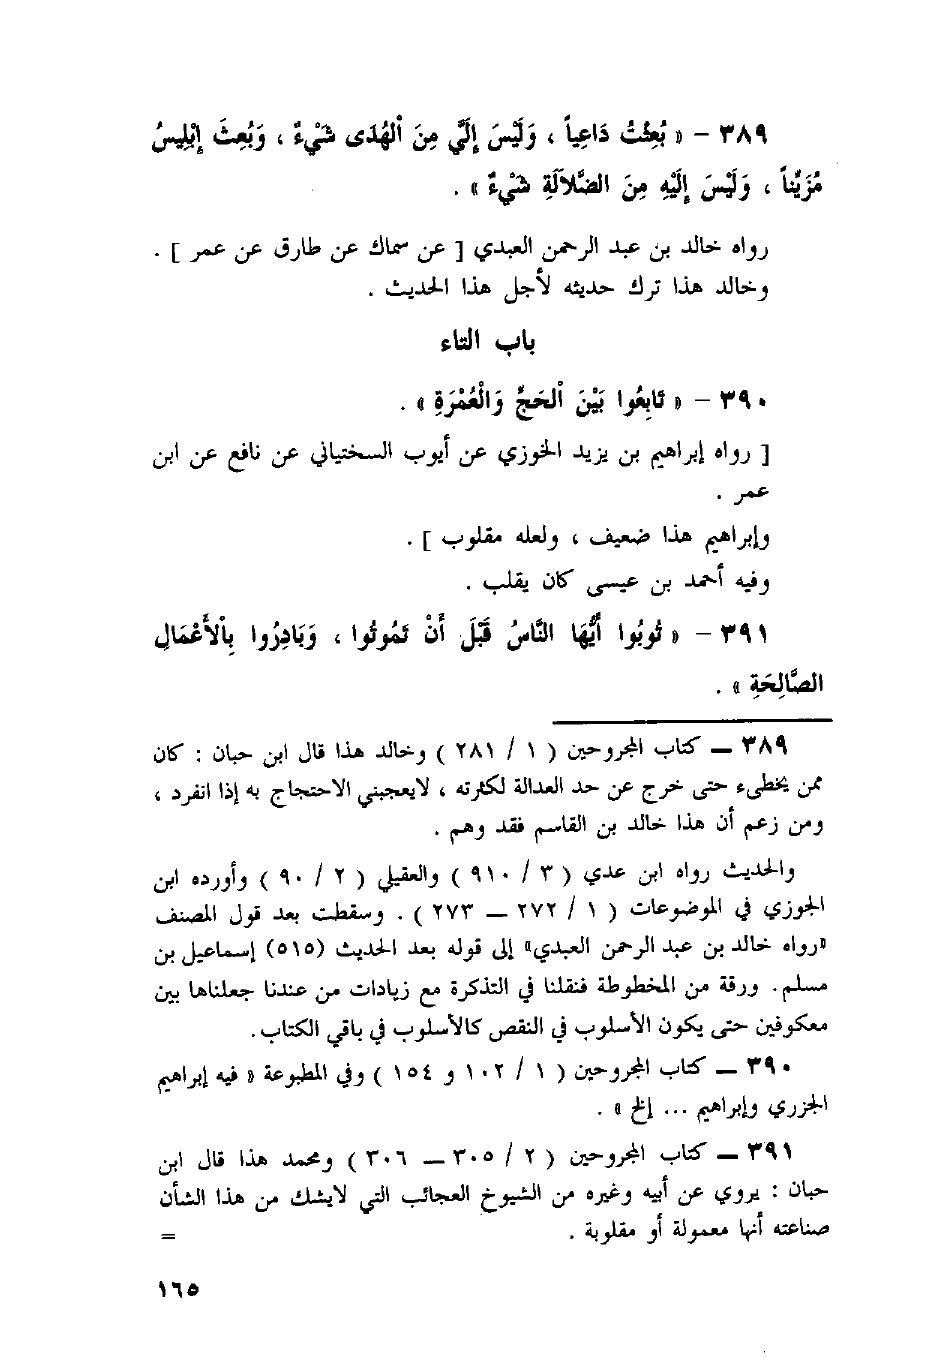 ٣٨٩ – « بُعِثْتُ دَاعِياً ، وَلَيْسَ إِلَيَّ مِنَ اْلهُدَى شَيْءٌ ، وَبُعِثَ إِبْلِيسُ
مُزَيِّناً ، وَلَيْسَ إِلَيْهِ مِنَ الضَّلاَلَةِ شَيْءٌ » .
رواه خالد بن عبد الرحمن العبدي [ عن سماك عن طارق عن عمر ] .
وخالد هذا ترك حديثه لأجل هذا الحديث .
باب التاء
٣٩٠ – « تَابِعُوا بَيْنَ اْلحَجِّ وَالْعُمْرَةِ » .
[ رواه إبراهيم بن يزيد الخوزي عن أيوب السختياني عن نافع عن ابن
عمر .
وإبراهيم هذا ضعيف ، ولعله مقلوب ] .
وفيه أحمد بن عيسى كان يقلب .
٣٩١ – « تُوبُوا أَيُّهَا النَّاسُ قَبْلَ أَنْ تَمُوتُوا ، وَبَادِرُوا بِاْلأَعْمَالِ
الصَّالِحَةِ » .
٣٨٩ — كتاب المجروحين ( ١ / ٢٨١ ) وخالد هذا قال ابن حبان : كان
ممن يخطىء حتى خرج عن حد العدالة لكثرته ، لايعجبني الاحتجاج به إذا انفرد ،
ومن زعم أن هذا خالد بن القاسم فقد وهم .
والحديث رواه ابن عدي ( ٣ / ٩١٠ ) والعقيلي ( ٢ / ٩٠ ) وأورده ابن
الجوزي في الموضوعات ( ١ / ٢٧٢ — ٢٧٣ ) . وسقطت بعد قول المصنف
«رواه خالد بن عبد الرحمن العبدي» إلى قوله بعد الحديث (٥١٥) إسماعيل بن
مسلم. ورقة من المخطوطة فنقلنا في التذكرة مع زيادات من عندنا جعلناها بين
معكوفين حتى يكون الأسلوب في النقص كالأسلوب في باقي الكتاب.
٣٩٠ — كتاب المجروحين ( ١ / ١٠٢ و ١٥٤ ) وفي المطبوعة « فيه إبراهيم
الجزري وإبراهيم ... إلخ » .
٣٩١ — كتاب المجروحين ( ٢ / ٣٠٥ — ٣٠٦ ) ومحمد هذا قال ابن
حبان : يروي عن أبيه وغيره من الشيوخ العجائب التي لايشك من هذا الشأن
صناعته أنها معمولة أو مقلوبة .
=
١٦٥